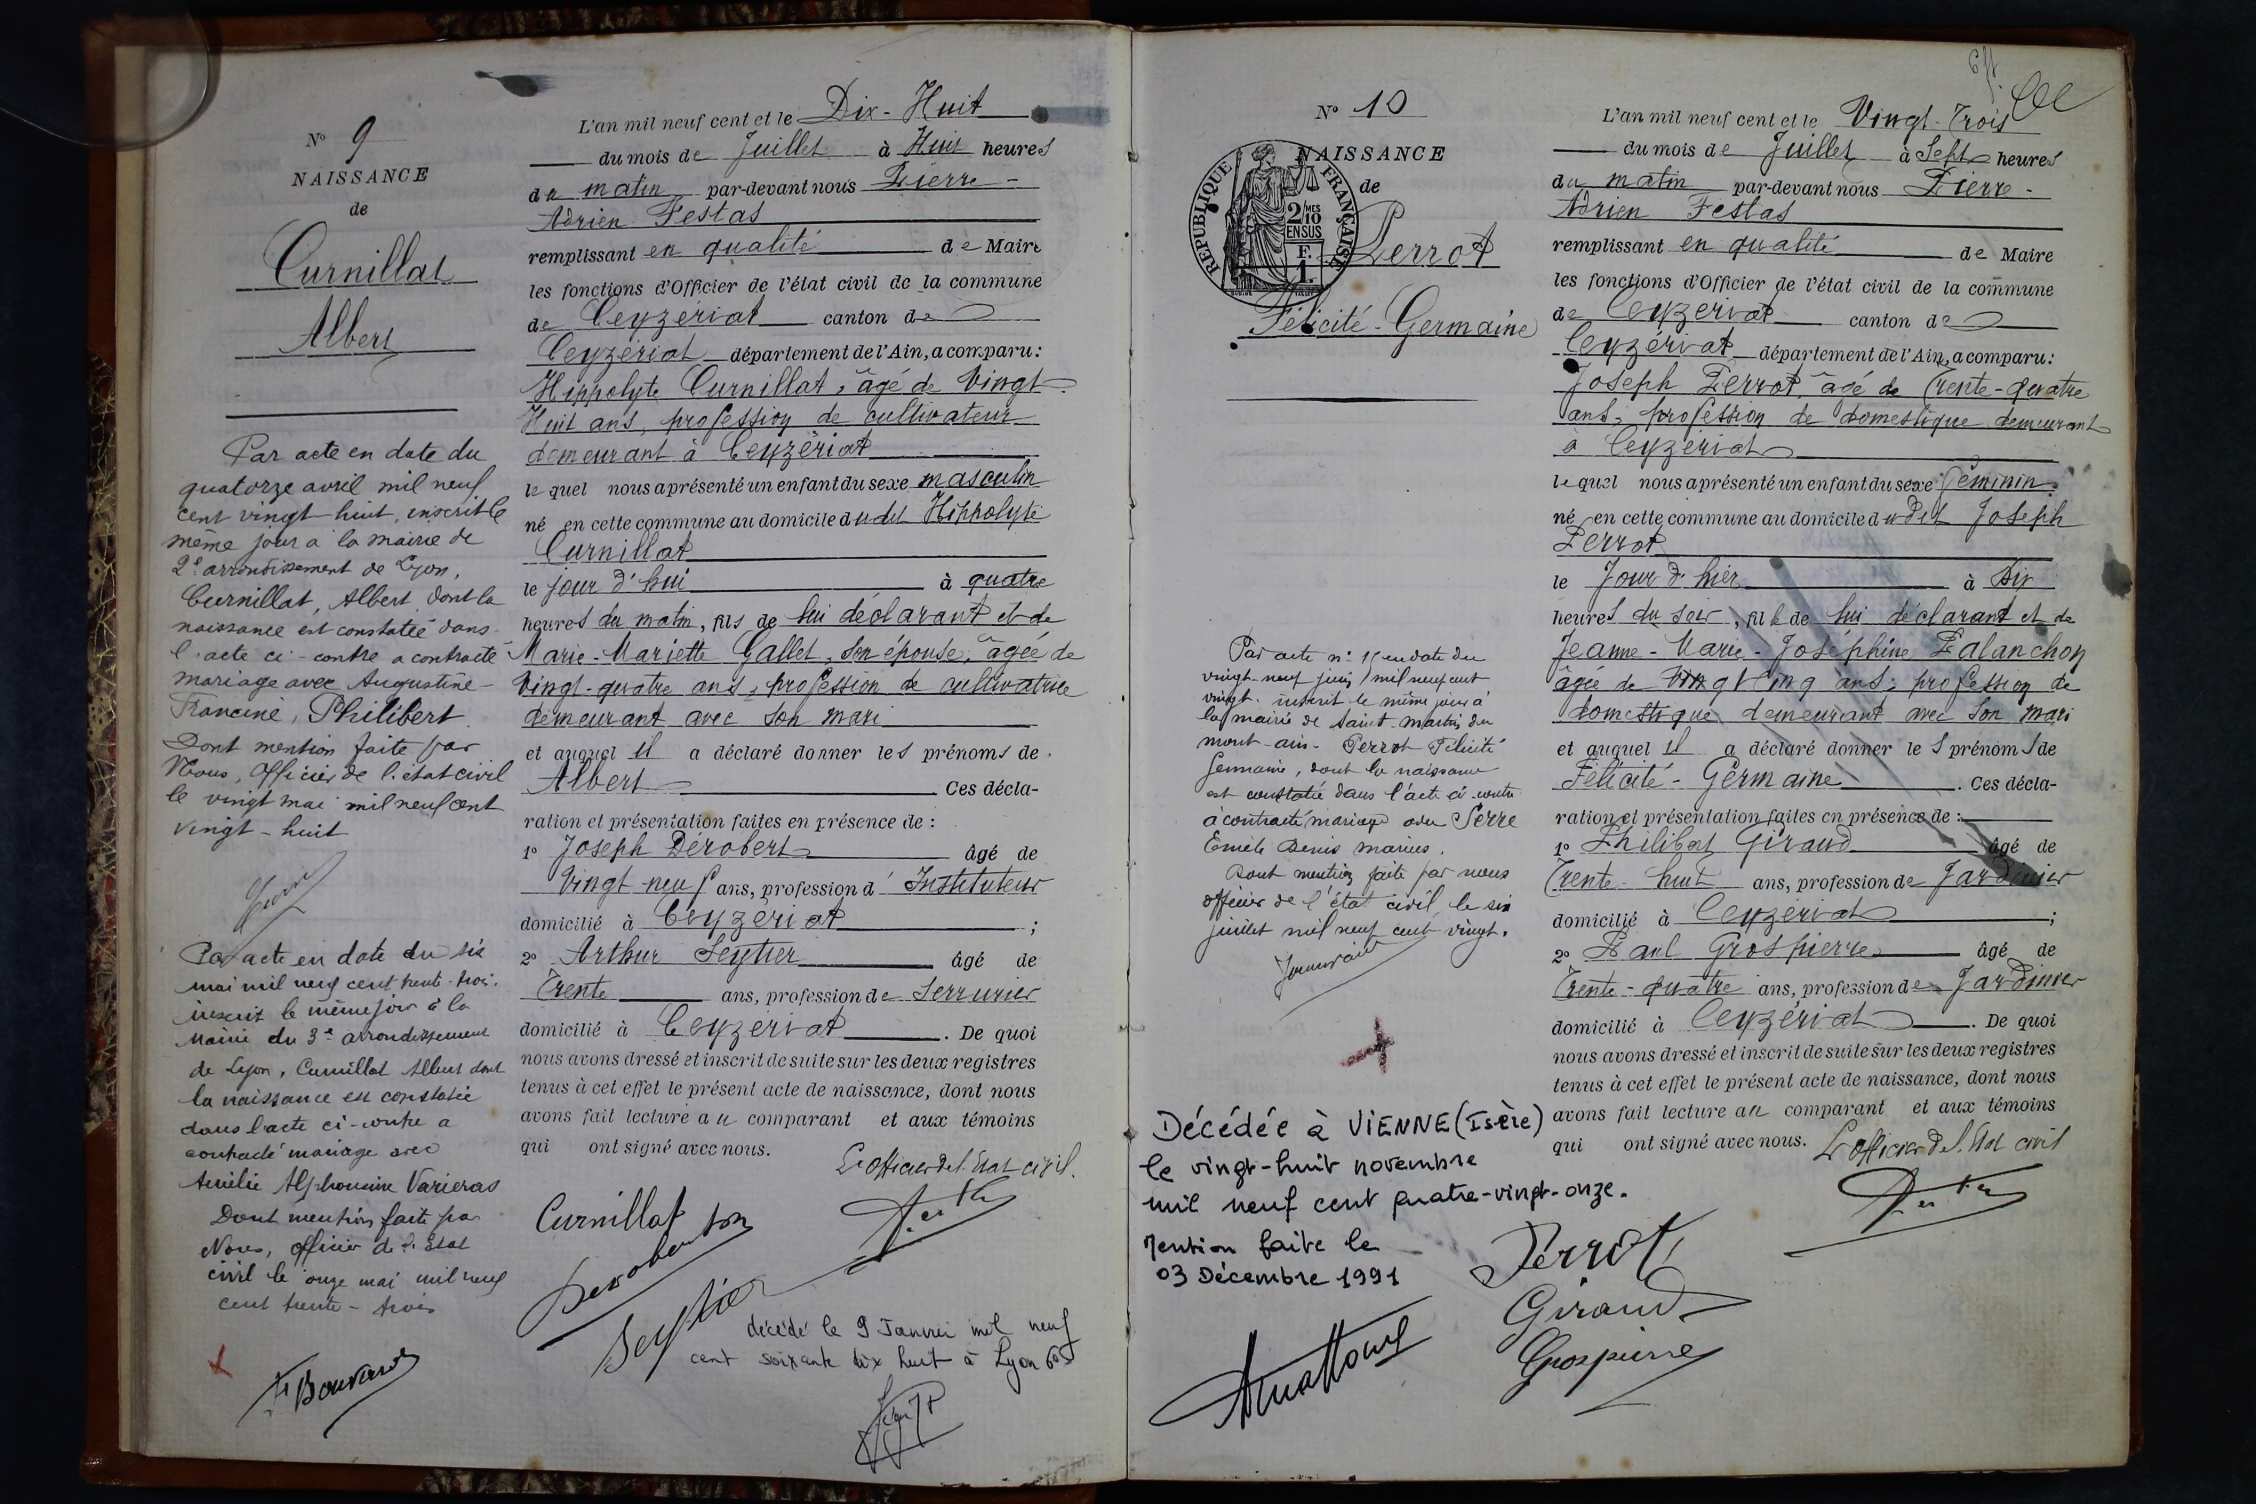 N° 9
NAISSANCE
de
Curnillat
Albert
Par acte en date du
quatorze avril mil neuf
cent vingt-huit, inscrit le
même jour à la mairie de
2e arrondissement de Lyon,
Curnillat, Albert dont la
naissance est constatée dans
l'acte ci-contre a contracté
mariage avec Augustine-
Francine, Philibert.
Dont mention faite par
Nous, Officier de l'état civil
le vingt mai mil neuf cent
vingt-huit
Par acte en date du six
mai mil neuf cent trente-trois
inscrit le même jour à la
Mairie du 3e arrondissement
de Lyon, Curnillat Albert dont
la naissance est constatée
dans l'acte ci-contre a
contracté mariage avec
Amélie Alphonsine Varieras
Dont mention faite par
Nous, Officier de l'État
civil le onze mai mil neuf
cent trente-trois
Bouvard
L'an mil neuf cent et le Dix-Huit
du mois de Juillet à Huit heures
du matin par-devant nous Pierre-
Adrien Festas
remplissant en qualité de Maire
les fonctions d'Officier de l'état civil de la commune
de Ceyzériat canton de
Ceyzériat département de l'Ain, a comparu:
Hippolyte Curnillat, âgé de Vingt-
Huit ans, profession de cultivateur
demeurant à Ceyzériat
lequel nous a présenté un enfant du sexe masculin
né en cette commune au domicile dudit Hippolyte
Curnillat
le jour d'hui à quatre
heures du matin, fils de lui déclarant et de
Marie-Mariette Gallet, son épouse, âgée de
Vingt-quatre ans, profession de cultivatrice
demeurant avec son mari
et auquel il a déclaré donner les prénoms de
Albert Ces décla-
ration et présentation faites en présence de :
1° Joseph Derobert âgé de
Vingt-neuf ans, profession d'Instituteur
domicilié à Ceyzériat ;
2° Arthur Seytier âgé de
Trente ans, profession de Serrurier
domicilié à Ceyzériat. De quoi
nous avons dressé et inscrit de suite sur les deux registres
tenus à cet effet le présent acte de naissance, dont nous
avons fait lecture au comparant et aux témoins
qui ont signé avec nous.
L'officier de l'État civil.
Curnillat
Derobert
Seytier
décédé le 9 Janvier mil neuf
cent soixante dix huit à Lyon 6e
N° 10
NAISSANCE
de
RÉPUBLIQUE FRANÇAISE
2/10 MES
EN SUS
1 F.
Perrot
Félicité-Germaine
Par acte n° 11 en date du
vingt-neuf juin mil neuf cent
vingt inscrit le même jour à
la mairie de Saint-Martin du
mont-ain- Perrot Félicité
Germaine, dont la naissance
est constatée dans l'acte ci-contre
à contracté mariage avec Serre
Emile Denis Marius.
Dont mention faite par nous
officier de l'état civil le six
juillet mil neuf cent vingt.
Décédée à VIENNE (Isère)
le vingt-huit novembre
mil neuf cent quatre-vingt-onze.
Mention faite le
03 Décembre 1991
L'an mil neuf cent et le Vingt-Trois
du mois de Juillet à Sept heures
du matin par-devant nous Pierre-
Adrien Festas
remplissant en qualité de Maire
les fonctions d'Officier de l'état civil de la commune
de Ceyzériat canton de
Ceyzériat département de l'Ain, a comparu:
Joseph Perrot, âgé de Trente-quatre
ans, profession de domestique demeurant
à Ceyzériat
lequel nous a présenté un enfant du sexe Féminin
né en cette commune au domicile dudit Joseph
Perrot
le Jour d'hier à Six
heures du soir, fille de lui déclarant et de
Jeanne-Marie-Joséphine Palanchon
âgée de Vingt cinq ans, profession de
domestique demeurant avec son mari
et auquel il a déclaré donner les prénoms de
Félicité-Germaine. Ces décla-
ration et présentation faites en présence de :
1° Philibert Giraud âgé de
Trente-huit ans, profession de Jardinier
domicilié à Ceyzériat ;
2° Paul Grospierre âgé de
Trente-quatre ans, profession de Jardinier
domicilié à Ceyzériat. De quoi
nous avons dressé et inscrit de suite sur les deux registres
tenus à cet effet le présent acte de naissance, dont nous
avons fait lecture au comparant et aux témoins
qui ont signé avec nous. L'officier de l'État civil
Perrot
Giraud
Grospierre